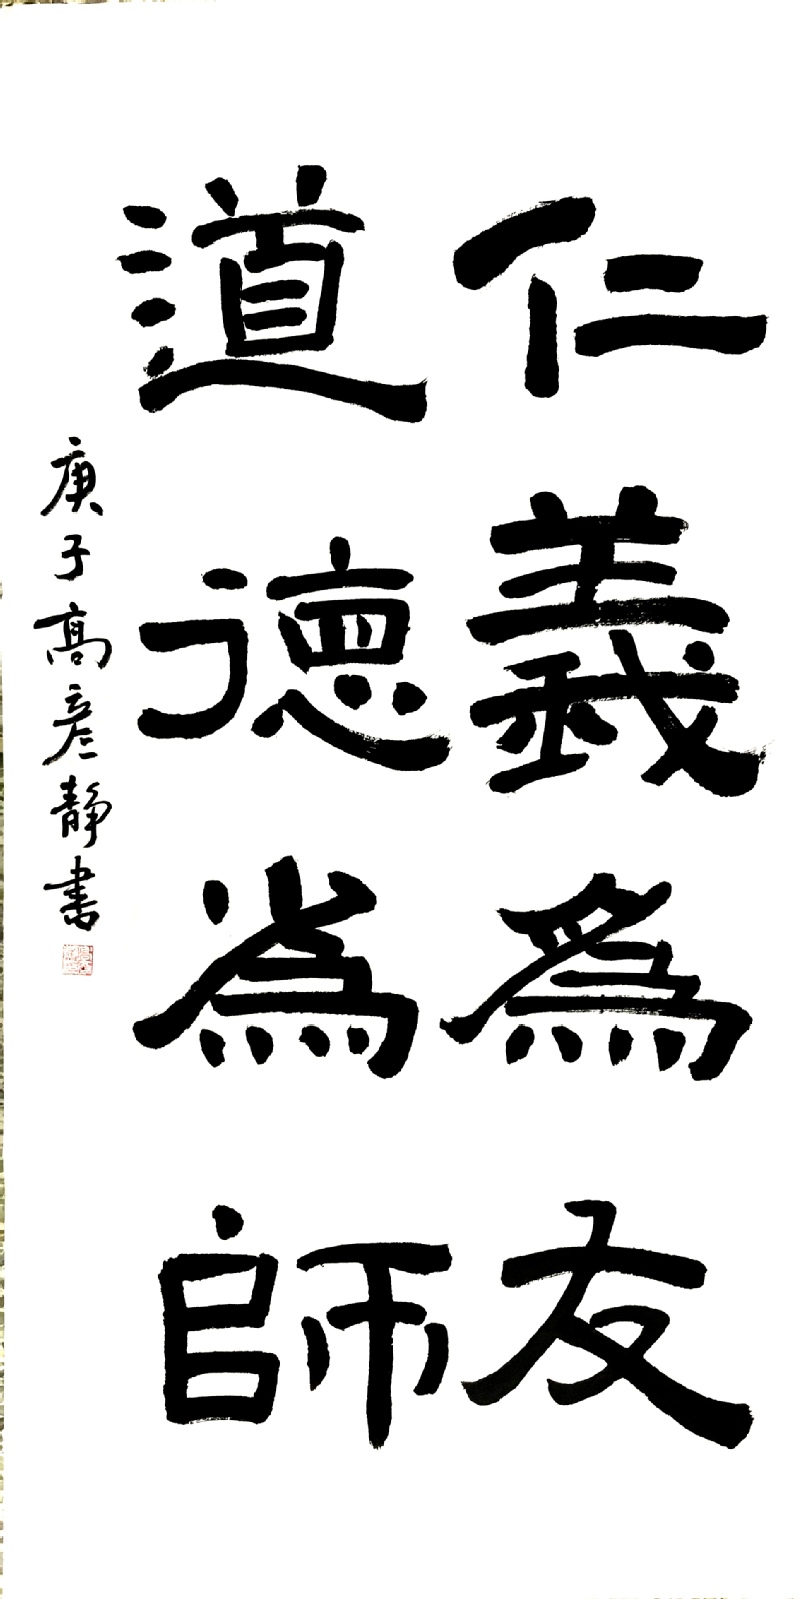 仁義為友
道德為師
庚子高彥靜書